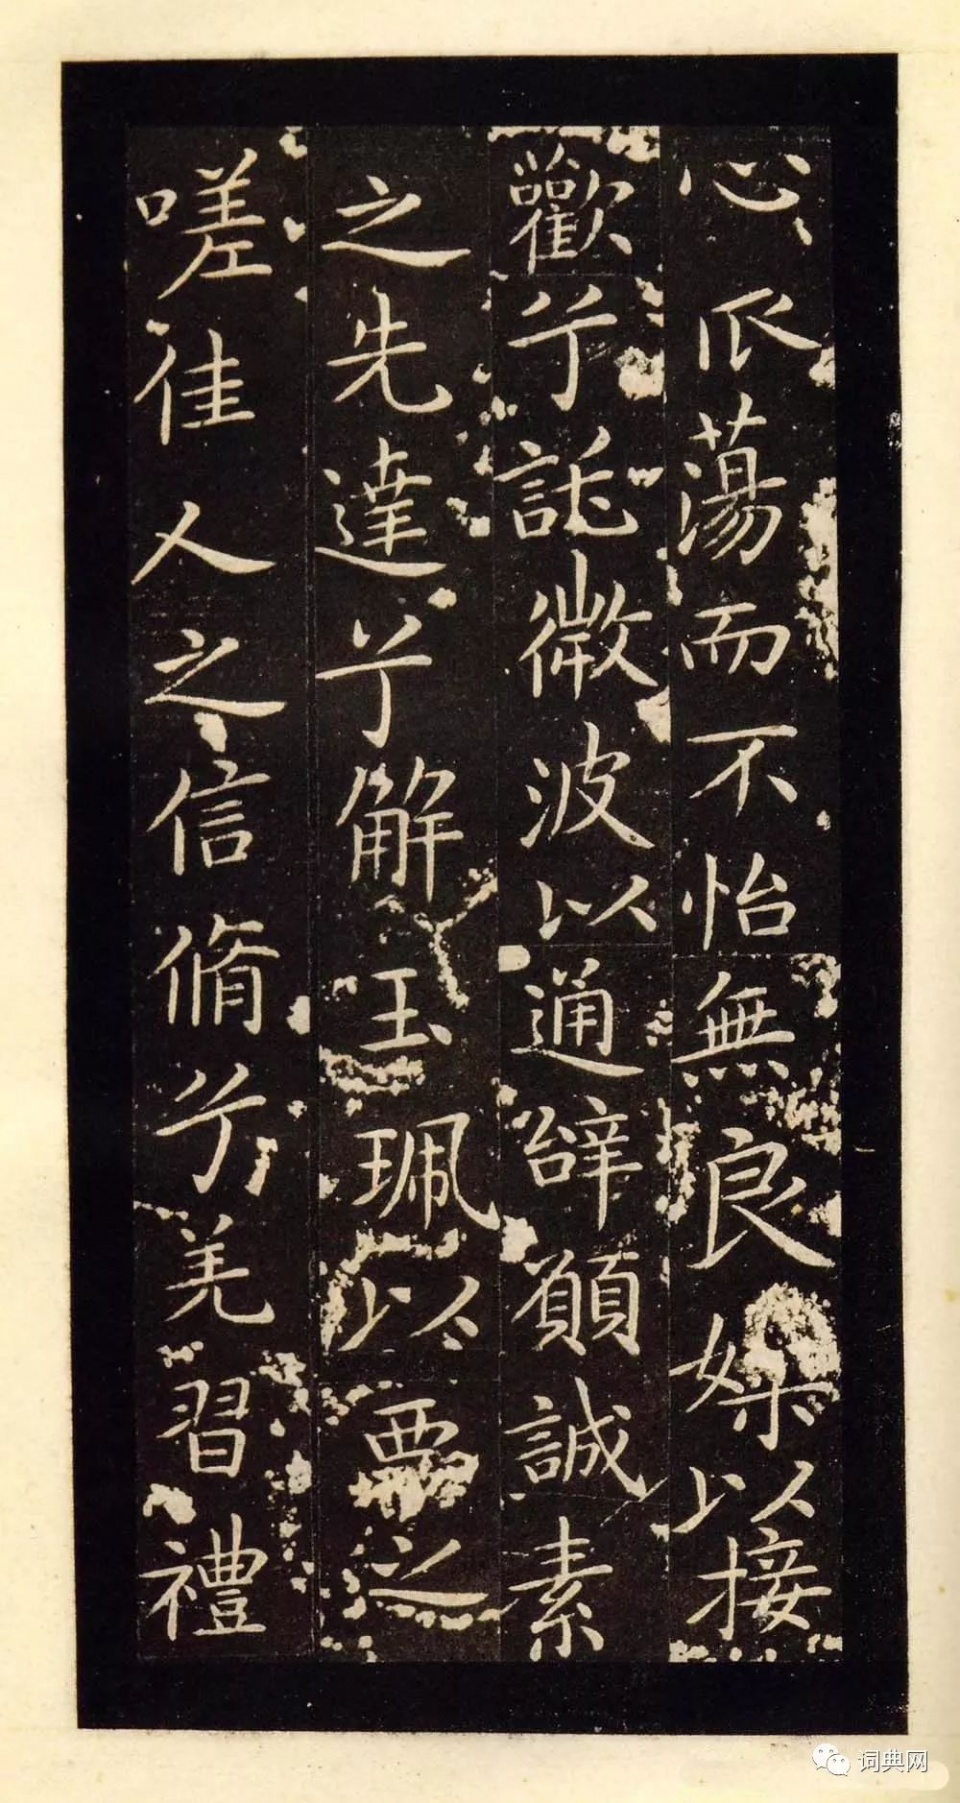 心㧾蕩而不怡無良媒以接
歡兮託微波以通辭願誠素
之先達兮解玉珮以要之
嗟佳人之信脩兮羌習禮
词典网